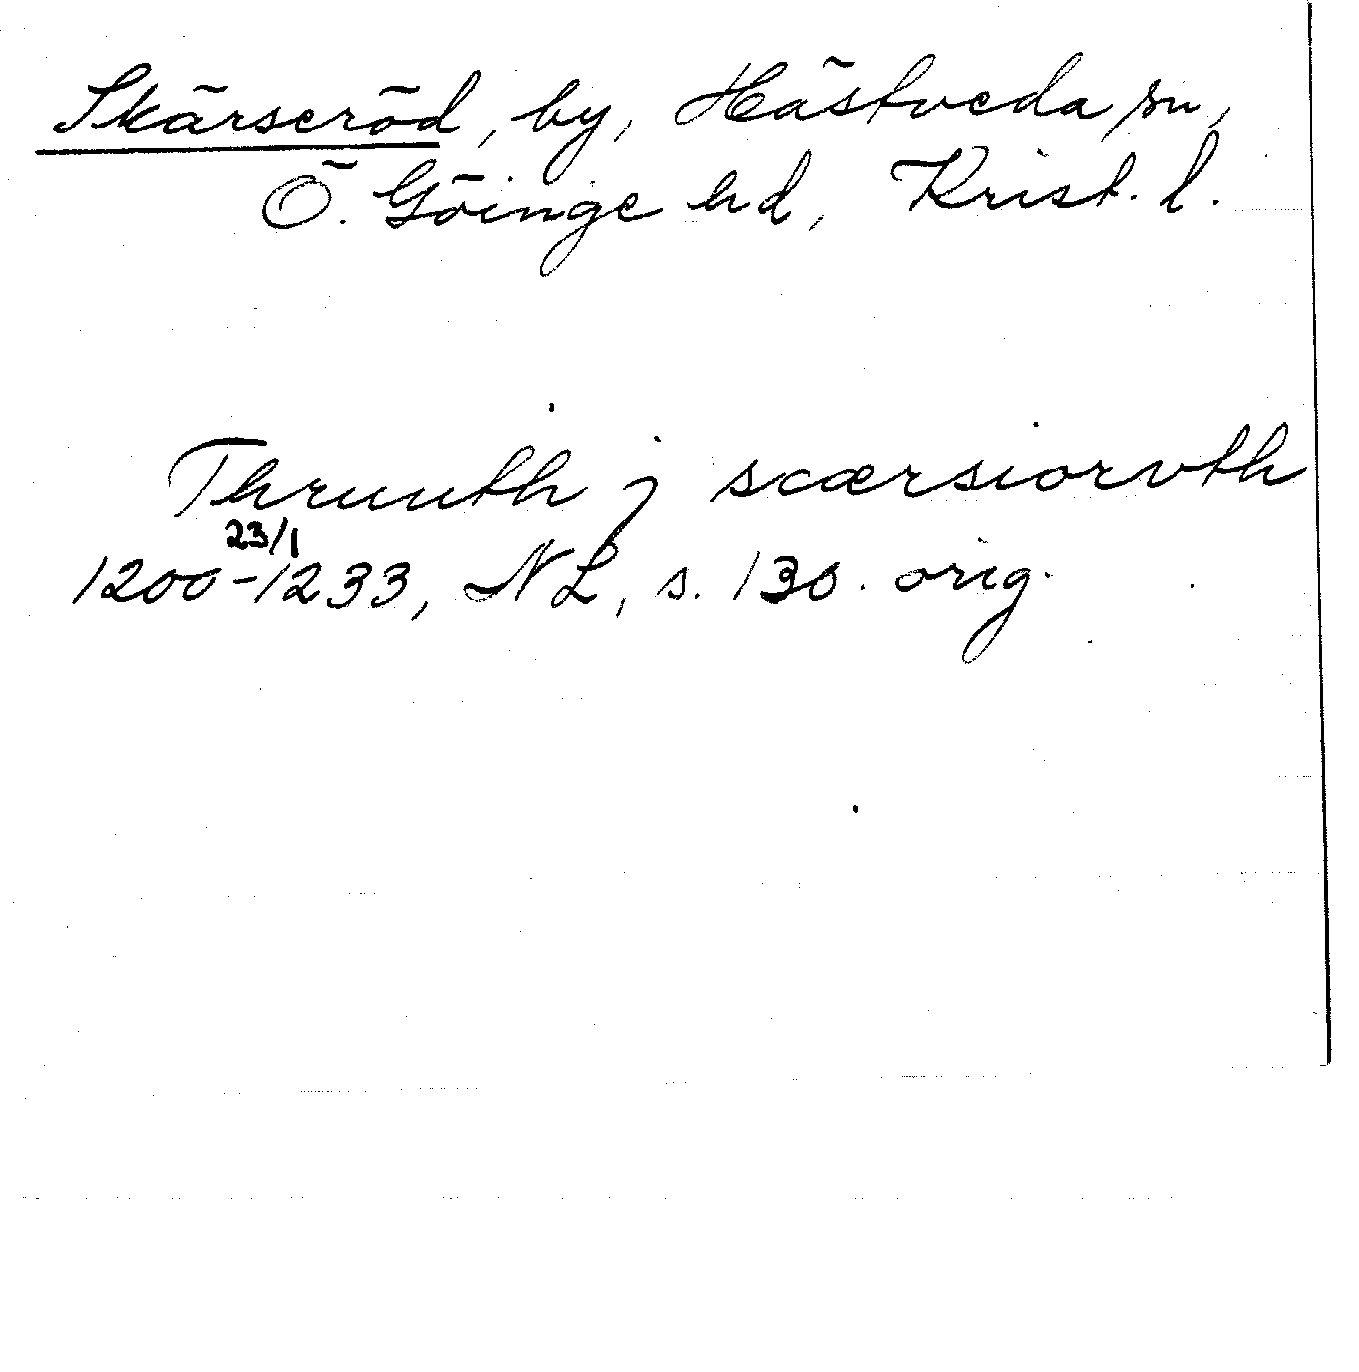 Skärseröd, by, Hästveda sn,
Ö. Göinge hd, Krist. l.
Thruuth j scærsiorvth
23/1
1200-1233, NL, s. 130. orig.